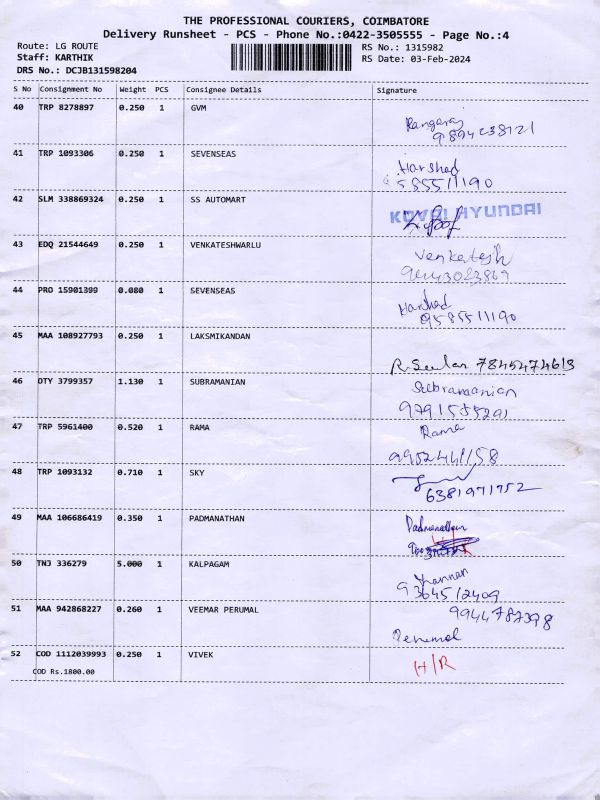 THE PROFESSIONAL COURIERS, COIMBATORE
Delivery Runsheet - PCS - Phone No.:0422-3505555 - Page No.:4
Route: LG ROUTE RS No.: 1315982
Staff: KARTHIK RS Date: 03-Feb-2024
DRS No.: DCJB131598204
S No Consignment No Weight PCS Consignee Details Signature
40 TRP 8278897 0.250 1 GVM
Rangaraj
9894238121
41 TRP 1093306 0.250 1 SEVENSEAS
Harshad
9585511190
42 SLM 338869324 0.250 1 SS AUTOMART
KOVAI HYUNDAI
43 EDQ 21544649 0.250 1 VENKATESHWARLU
Venkatesh
9443023869
44 PRO 15901399 0.080 1 SEVENSEAS
Harshad
9585511190
45 MAA 108927793 0.250 1 LAKSMIKANDAN
7845474613
46 OTY 3799357 1.130 1 SUBRAMANIAN
Subramanian
9791535291
47 TRP 5961400 0.520 1 RAMA
Rama
9952441158
48 TRP 1093132 0.710 1 SKY
6381971752
49 MAA 106686419 0.350 1 PADMANATHAN
Padmanathan
50 TNJ 336279 5.000 1 KALPAGAM
Kannan
9364512409
51 MAA 942868227 0.260 1 VEEMAR PERUMAL
9944787398
Perumal
52 COD 1112039993 0.250 1 VIVEK
H/R
COD Rs.1800.00